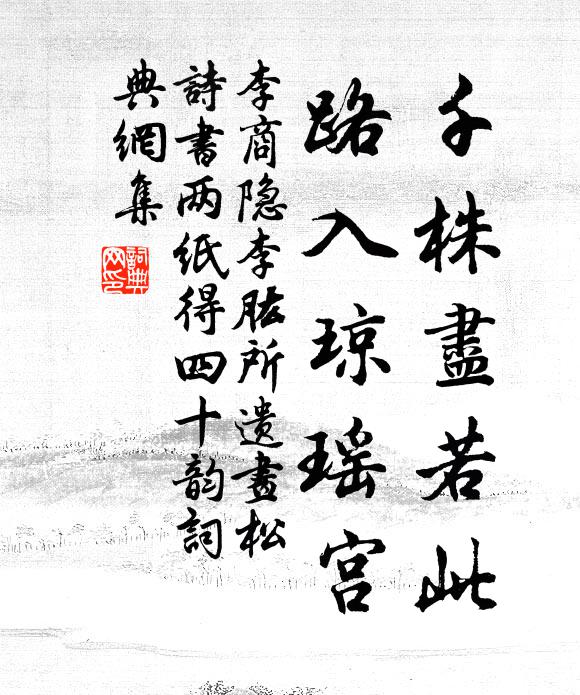 千株盡若此
路入琼瑶宫
李商隐李肱所遗畫松
詩書两纸得四十韵詞
典網集
詞典網印